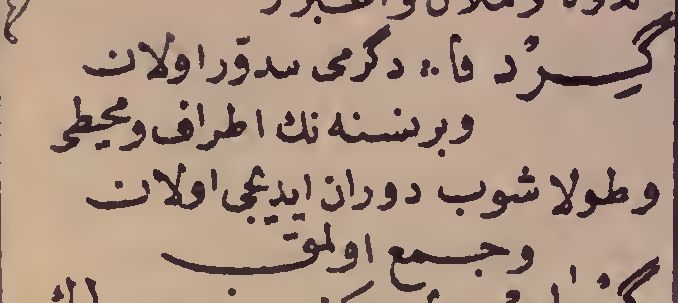 گِرْد فا : دگرمی مدوّر اولان
و بر نسنه نك اطراف و محیطی
و طولاشوب دوران ایدیجی اولان
و جمع اولمق